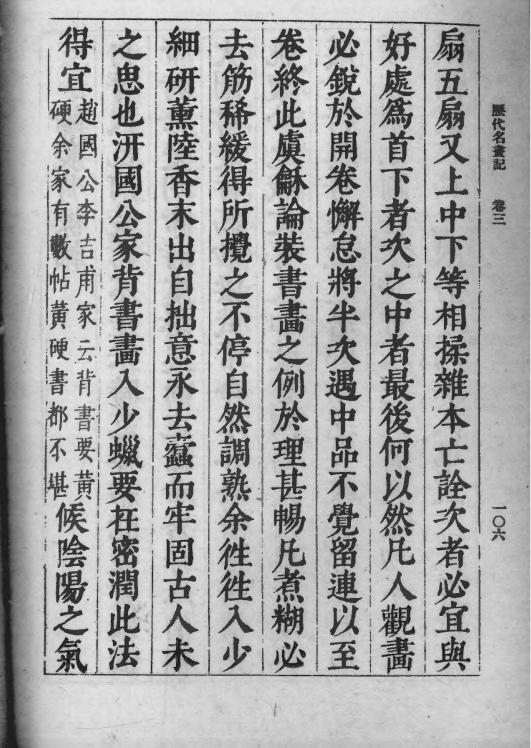 歷代名畫記　卷三　一〇六
扇五扇又上中下等相揉雜本亡詮次者必宜與
好處爲首下者次之中者最後何以然凡人觀畵
必銳於開卷懈怠將半次遇中品不覺留連以至
卷終此虞龢論裝書畵之例於理甚暢凡煮糊必
去筋稀緩得所攪之不停自然調熟余徃徃入少
細研薰陸香末出自拙意永去蠧而牢固古人未
之思也汧國公家背書畵入少蠟要在密潤此法
得宜趙國公李吉甫家云背書要黃硬余家有數帖黃硬書都不堪候陰陽之氣